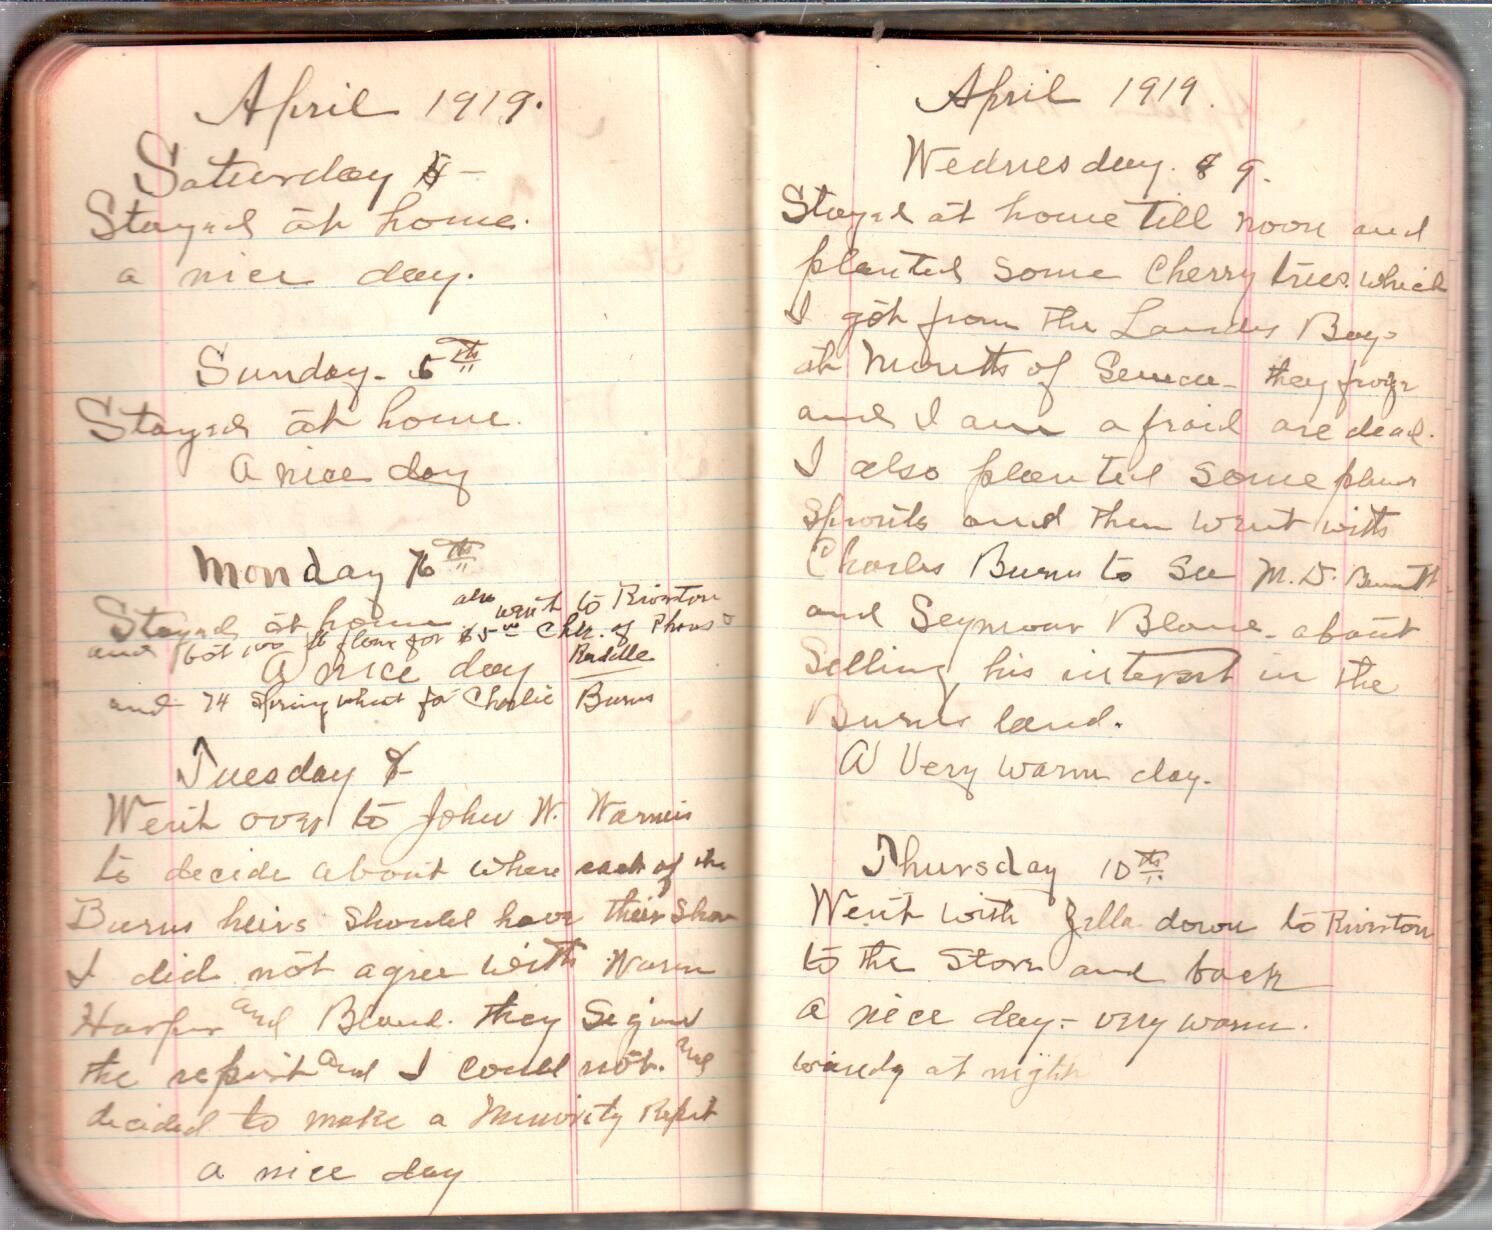 April 1919.
Saturday 5
Stayed at home.
a nice day.
Sunday. 6th
Stayed at home.
A nice day
Monday 7th
Stayed at home also went to Riverton
and Got 100 lb flour for $5.00 of Phares
A nice day
and 74 Spring wheat for Charlie Burns
Tuesday 8
Went over to John W. Warners
to decide about where each of the
Burns heirs should have their Share
I did not agree with Warner
Harper and Bland. they Signed
the report and I could not. and
decided to make a Minority Report
a nice day
April 1919.
Wednesday. 9.
Stayed at home till noon and
planted some Cherry trees. which
I got from the Boys
at Mouth of Seneca they froze
and I am afraid are dead.
I also planted some plum
sprouts and then went with
Charles Burns to See M. D. Bennett
and Seymour Bland. about
Selling his interest in the
Burns land.
A Very warm day.
Thursday 10th.
Went with Zella down to Riverton
to the Store and back
a nice day - very warm.
windy at night